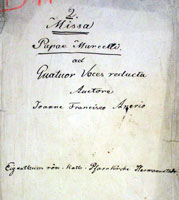 2.
Missa
Papae Marcelli
ad
Quatuor Voces reducta
Auctore
Joanne Francisco Anerio
Eigenthum röm. kath. Pfarrkirche Hermannstadt